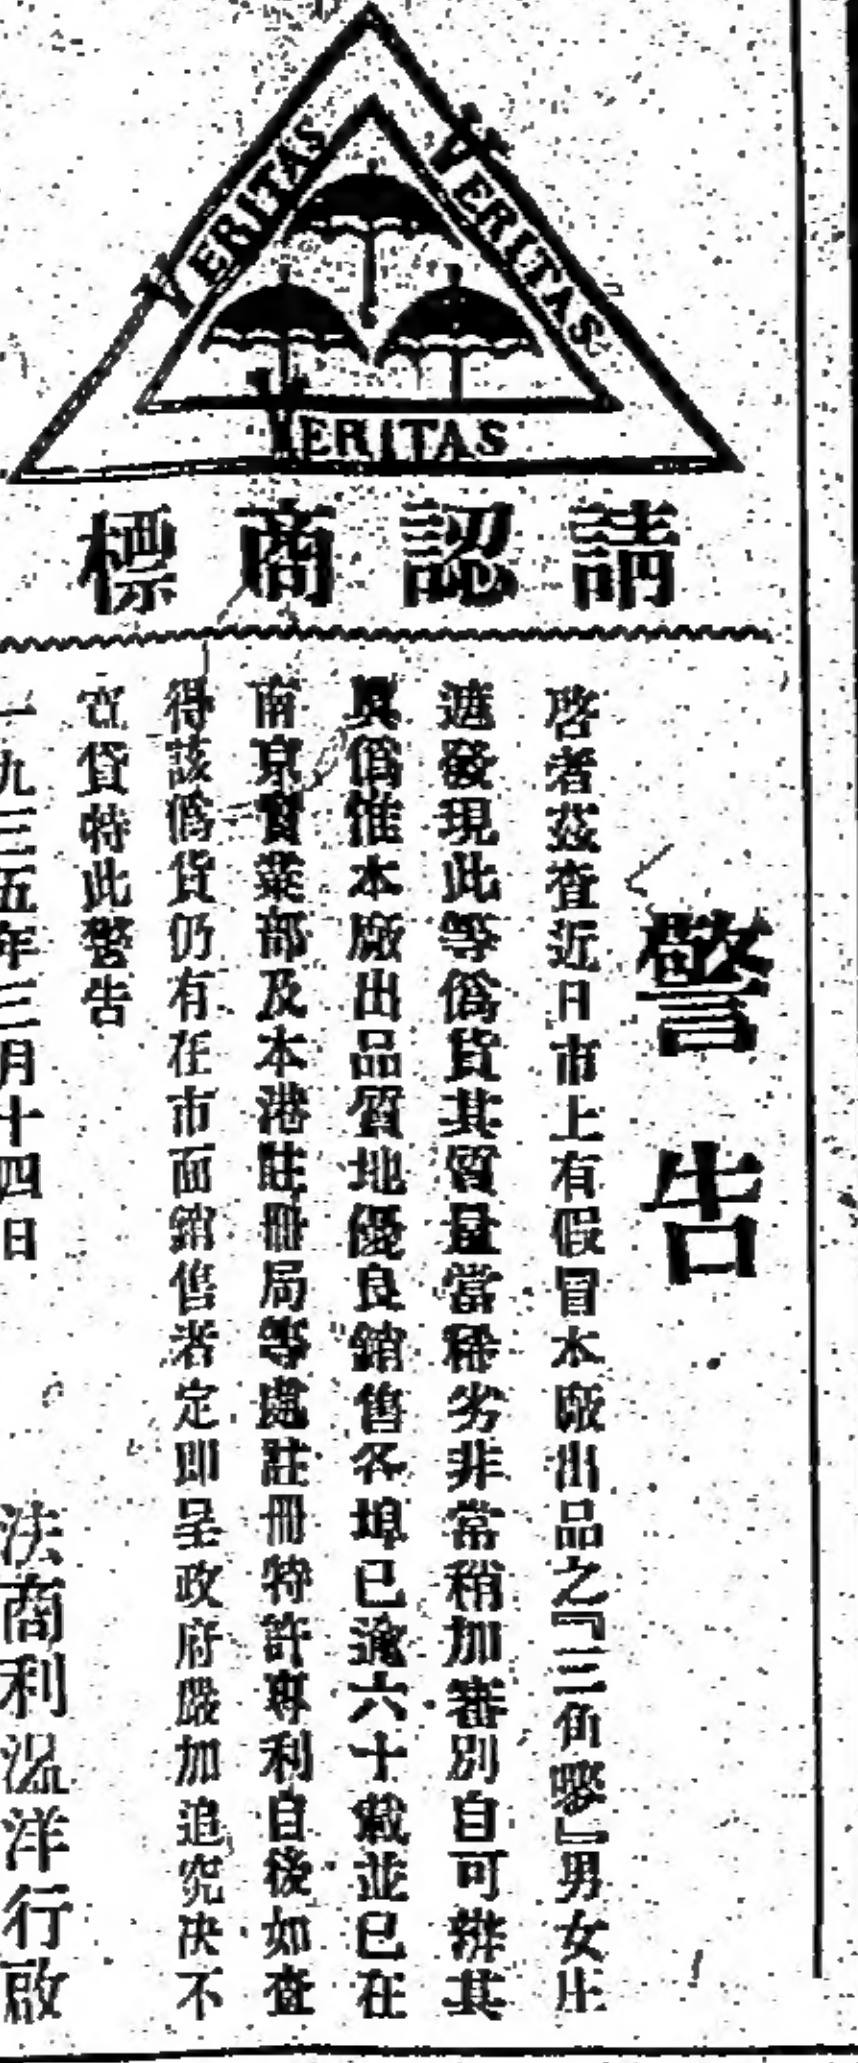 VERITAS
VERITAS
VERITAS
請認商標
警告
啓者茲查近日市上有假冒本廠出品之『三角嘜』男女庄
遮發現此等僞貨其質量當稀劣非常稍加審別自可辨其
眞僞惟本廠出品質地優良銷售各埠已逾六十載並已在
南京實業部及本港註冊局等處註冊特許專利自後如查
得該僞貨仍有在市面銷售者定即呈政府嚴加追究决不
寬貸特此警告
一九三五年三月十四日
法商利溫洋行啟